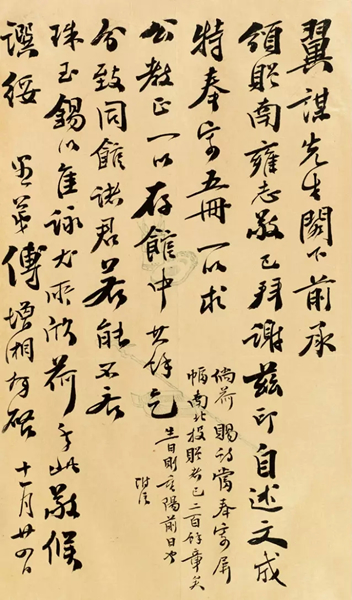 翼謀先生閣下前承
頒賜南雍志敬已拜謝茲印自述文成
特奉寄五冊一以求
公教正一以存館中其餘乞
分致同館諸君若能不吝
珠玉錫以佳詠尤所欣荷手此敬候
譔綏 愚弟傅增湘 啟 十一月廿四日
倘荷賜詩當奉寄屏
幅南北投贈者已二百餘章矣
生日則重陽前日也